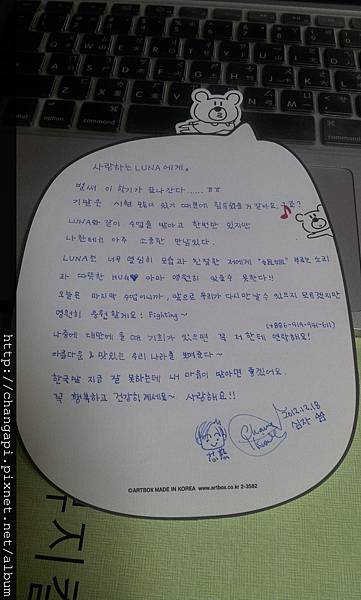 사랑하는 LUNA에게。
벌써 이 학기가 끝나간다...... ㅠㅠ
기말은 시험 때문에 힘드셨을 거 같아요. 그죠?
LUNA와 같이 수업을 받아고 한번만 있지만
나한테는 아주 소중한 만남같다.
LUNA의 너무 열심히 모습과 친절한 저에게 부르는 소리
과 따뜻한 HUG♥ 아마 영원히 잊을수 못한다!!
오늘은 마지막 수업이니까, 앞으로 우리가 다시 만날 수 있으지 모르겠지만
영원히 응원할게요! Fighting~
(+886-919-941-611)
나중에 대만에 올 때 기회가 있으면 꼭 저한테 연락해요!
아름다운 & 맛있는 우리 나라를 뽀여줄다~
한국말 지금 잘 못하는데 내 마음이 받아면 좋겠어요.
꼭 행복하고 건강히 계세요~ 사랑해요!!
2012.12.18
©ARTBOX MADE IN KOREA www.artbox.co.kr 2-3582
http://changapi.pixnet.net/album
control
option
command
command
option